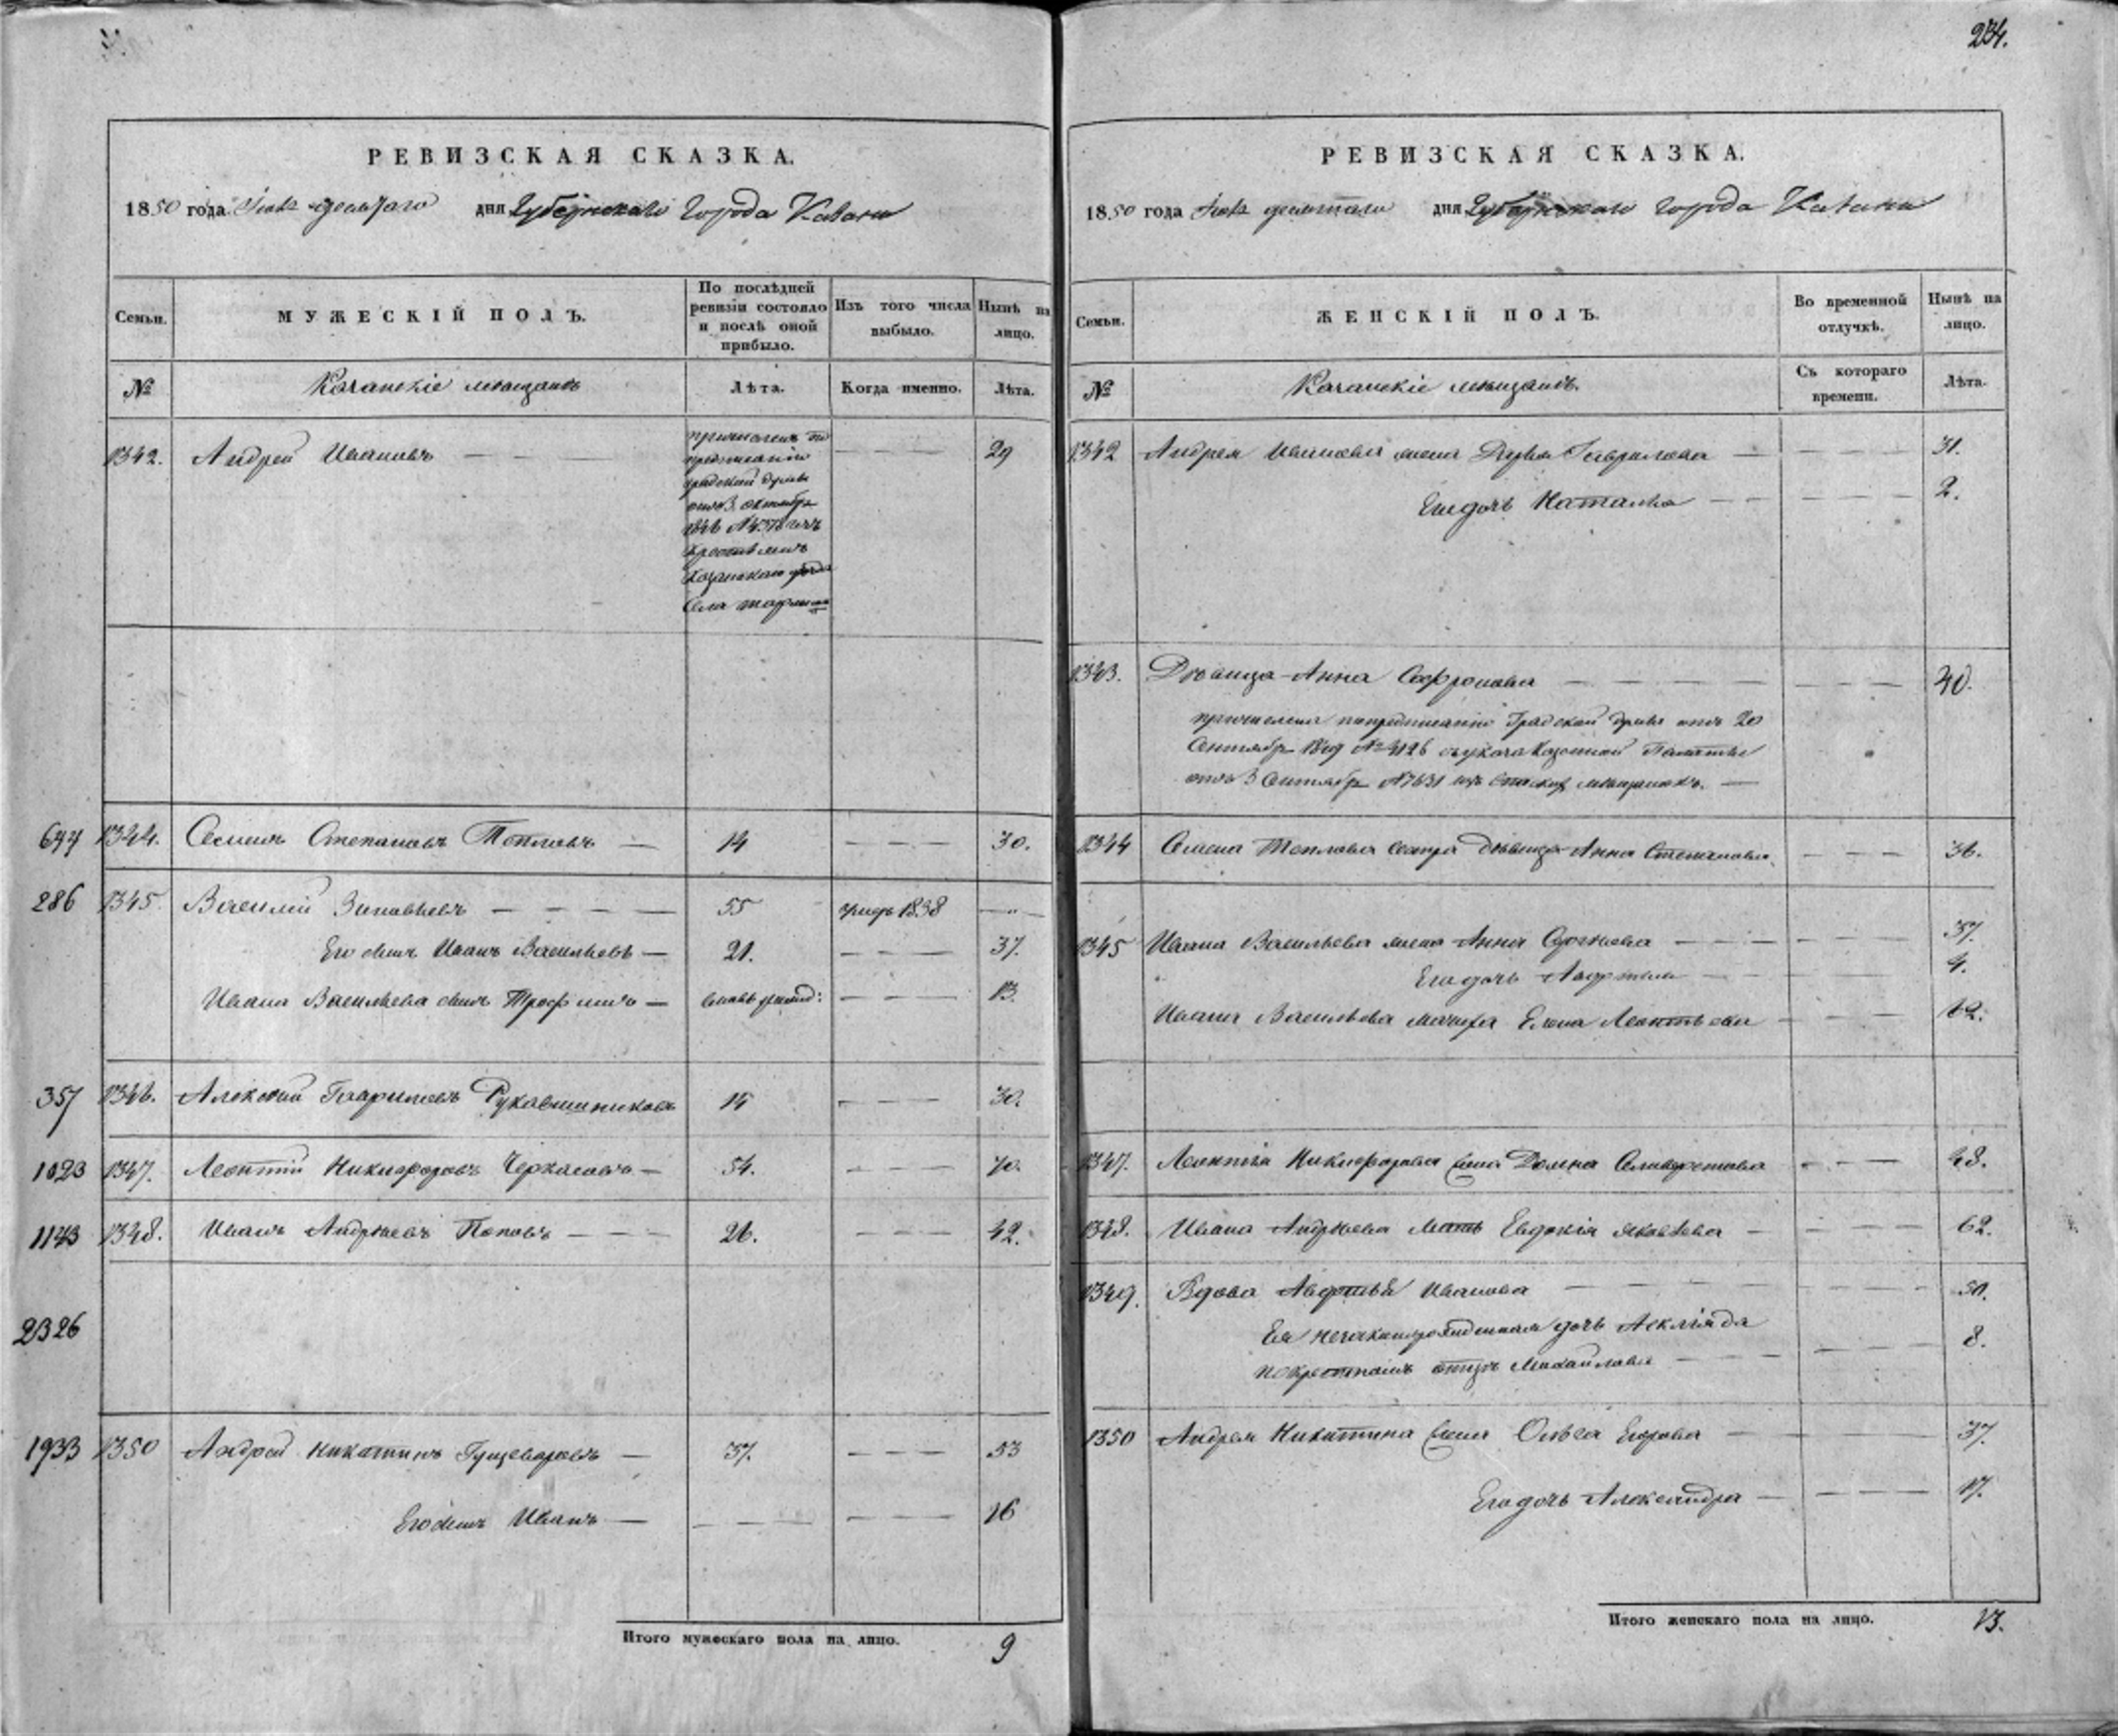 234.
РЕВИЗСКАЯ СКАЗКА.
1850 года дня Губернскаго города Казани
Семьи.
МУЖЕСКІЙ ПОЛЪ.
По послѣдней ревизіи состояло и послѣ оной прибыло.
Изъ того числа выбыло.
Нынѣ на лицо.
№
Казанскіе мѣщане
Лѣта.
Когда именно.
Лѣта.
1342. Андрей Ивановъ — — — 29
причисленъ по
предписанію
градской думы
отъ 3 октября
1846 № изъ
Казанскаго уѣзда
села
644 1344. Семенъ Степановъ Тепловъ — 14 — — — 30.
286 1345 Василій Зиновьевъ — — — — 55 умеръ 1838 —
Его сынъ Иванъ Васильевъ — 21. — — — 37.
Ивана Васильева сынъ Трофимъ — — — — 13.
357 1346. Алексѣй Гавриловъ Рукавишниковъ 14 — — — 30.
1023 1347. Леонтій Никифоровъ Черкасовъ — 54. — — — 70.
1143 1348. Иванъ Андреевъ Поповъ — — — 26. — — — 42.
2326
1933 1350 Андрей Никитинъ — 37. — — — 53
Его сынъ Иванъ — — — — — — — 16
Итого мужескаго пола на лицо. 9
РЕВИЗСКАЯ СКАЗКА.
1850 года дня Губернскаго города Казани
Семьи.
ЖЕНСКІЙ ПОЛЪ.
Во временной отлучкѣ.
Нынѣ на лицо.
№
Казанскіе мѣщане.
Съ котораго времени.
Лѣта.
1342 Андрея Иванова жена Дарья Гаврилова — — — — 31.
Его дочь Наталья — — — — — 2.
1343. Дѣвица Анна Софронова — — — — — — — 40.
причислена по предписанію Градской думы отъ 20
Сентября 1849 № 4126 съ указа Казенной Палаты
отъ 3 Сентября № 7631 изъ мѣщанокъ. —
1344 Семена Теплова сестра дѣвица Анна Степанова. — — — 36.
1345 Ивана Васильева жена Анна Сергѣева — — — — — — 37.
Его дочь Авдотья — — — — — 4.
Ивана Васильева мачиха Елена Леонтьева — — — 62.
1347. Леонтія Никифорова жена Домна Селиверстова — — — 48.
1348. Ивана Андреева мать Евдокія Яковлева — — — — 62.
1349. Вдова Авдотья Иванова — — — — — — — 50.
Ея незаконнорожденная дочь
по крестномъ отцѣ Михайлова — — — — — — 8.
1350 Андрея Никитина жена Ольга Егорова — — — — — 37.
Его дочь Александра — — — — 17.
Итого женскаго пола на лицо. 13.